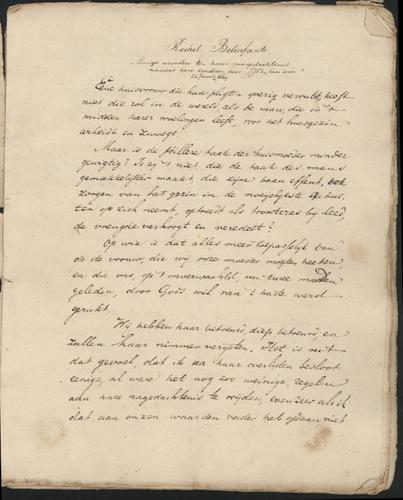 Rachel Belinfante
Eenige woorden ter harer nagedachtenis
Eene huisvrouw die hare pligten ijverig vervult, heeft
niet die rol in de wereld als de man, die in 't
midden harer woelingen leeft, voor het huisgezin
arbeidt en zwoegt.
Maar is de stillere taak der huismoeder minder
gewigtig? Is zij 't niet die de taak des mans
gemakkelijker maakt, die zijne baan effent, de
zorgen van het gezin in de moeijelijkste
op zich neemt, optreedt als troosteres bij leed,
de vreugde verhoogt en veredelt?
Op wie is dat alles meer toepasselijk dan
op de vrouw, die wij onze moeder mogten heeten,
en die ons, op 't onverwachtst, nu twee maanden
geleden, door Gods wil van 't harte werd
gerukt.
Wij hebben haar betreurd, diep betreurd, en
zullen haar nimmer vergeten. Het is met
dat gevoel, dat ik na haar overlijden besloot
eenige, al ware het nog zoo weinige, regelen
aan hare nagedachtenis te wijden, evenzeer als ik
dat aan onzen waarden vader heb gedaan, met